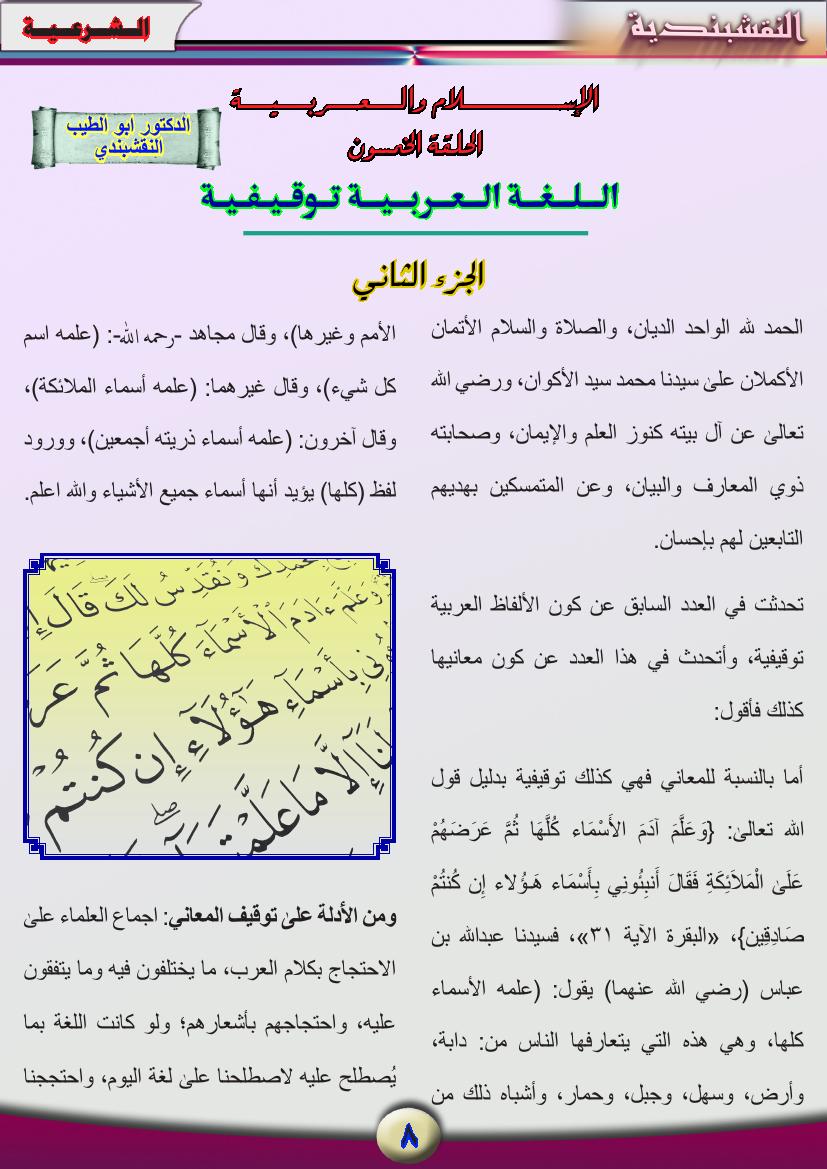 النقشبندية
الشرعية
الإسلام والعربية
الحلقة الخمسون
الدكتور ابو الطيب
النقشبندي
اللغة العربية توقيفية
الجزء الثاني
الحمد لله الواحد الديان، والصلاة والسلام الأتمان
الأكملان علىٰ سيدنا محمد سيد الأكوان، ورضي الله
تعالىٰ عن آل بيته كنوز العلم والإيمان، وصحابته
ذوي المعارف والبيان، وعن المتمسكين بهديهم
التابعين لهم بإحسان.
تحدثت في العدد السابق عن كون الألفاظ العربية
توقيفية، وأتحدث في هذا العدد عن كون معانيها
كذلك فأقول:
أما بالنسبة للمعاني فهي كذلك توقيفية بدليل قول
الله تعالىٰ: {وَعَلَّمَ آدَمَ الأَسْمَاء كُلَّهَا ثُمَّ عَرَضَهُمْ
عَلَىٰ الْمَلاَئِكَةِ فَقَالَ أَنبِئُونِي بِأَسْمَاء هَـؤُلاء إِن كُنتُمْ
صَادِقِين}، «البقرة الآية ٣١»، فسيدنا عبدالله بن
عباس (رضي الله عنهما) يقول: (علمه الأسماء
كلها، وهي هذه التي يتعارفها الناس من: دابة،
وأرض، وسهل، وجبل، وحمار، وأشباه ذلك من
الأمم وغيرها)، وقال مجاهد -رحمه الله-: (علمه اسم
كل شيء)، وقال غيرهما: (علمه أسماء الملائكة)،
وقال آخرون: (علمه أسماء ذريته أجمعين)، وورود
لفظ (كلها) يؤيد أنها أسماء جميع الأشياء والله اعلم.
وَنُقَدِّسُ لَكَ قَالَ
وَعَلَّمَ ءَادَمَ ٱلْأَسْمَآءَ كُلَّهَا ثُمَّ
بِأَسْمَآءِ هَٰٓؤُلَآءِ إِن كُنتُمْ
إِلَّا مَا
ومن الأدلة علىٰ توقيف المعاني: اجماع العلماء علىٰ
الاحتجاج بكلام العرب، ما يختلفون فيه وما يتفقون
عليه، واحتجاجهم بأشعارهم؛ ولو كانت اللغة بما
يُصطلح عليه لاصطلحنا علىٰ لغة اليوم، واحتججنا
٨